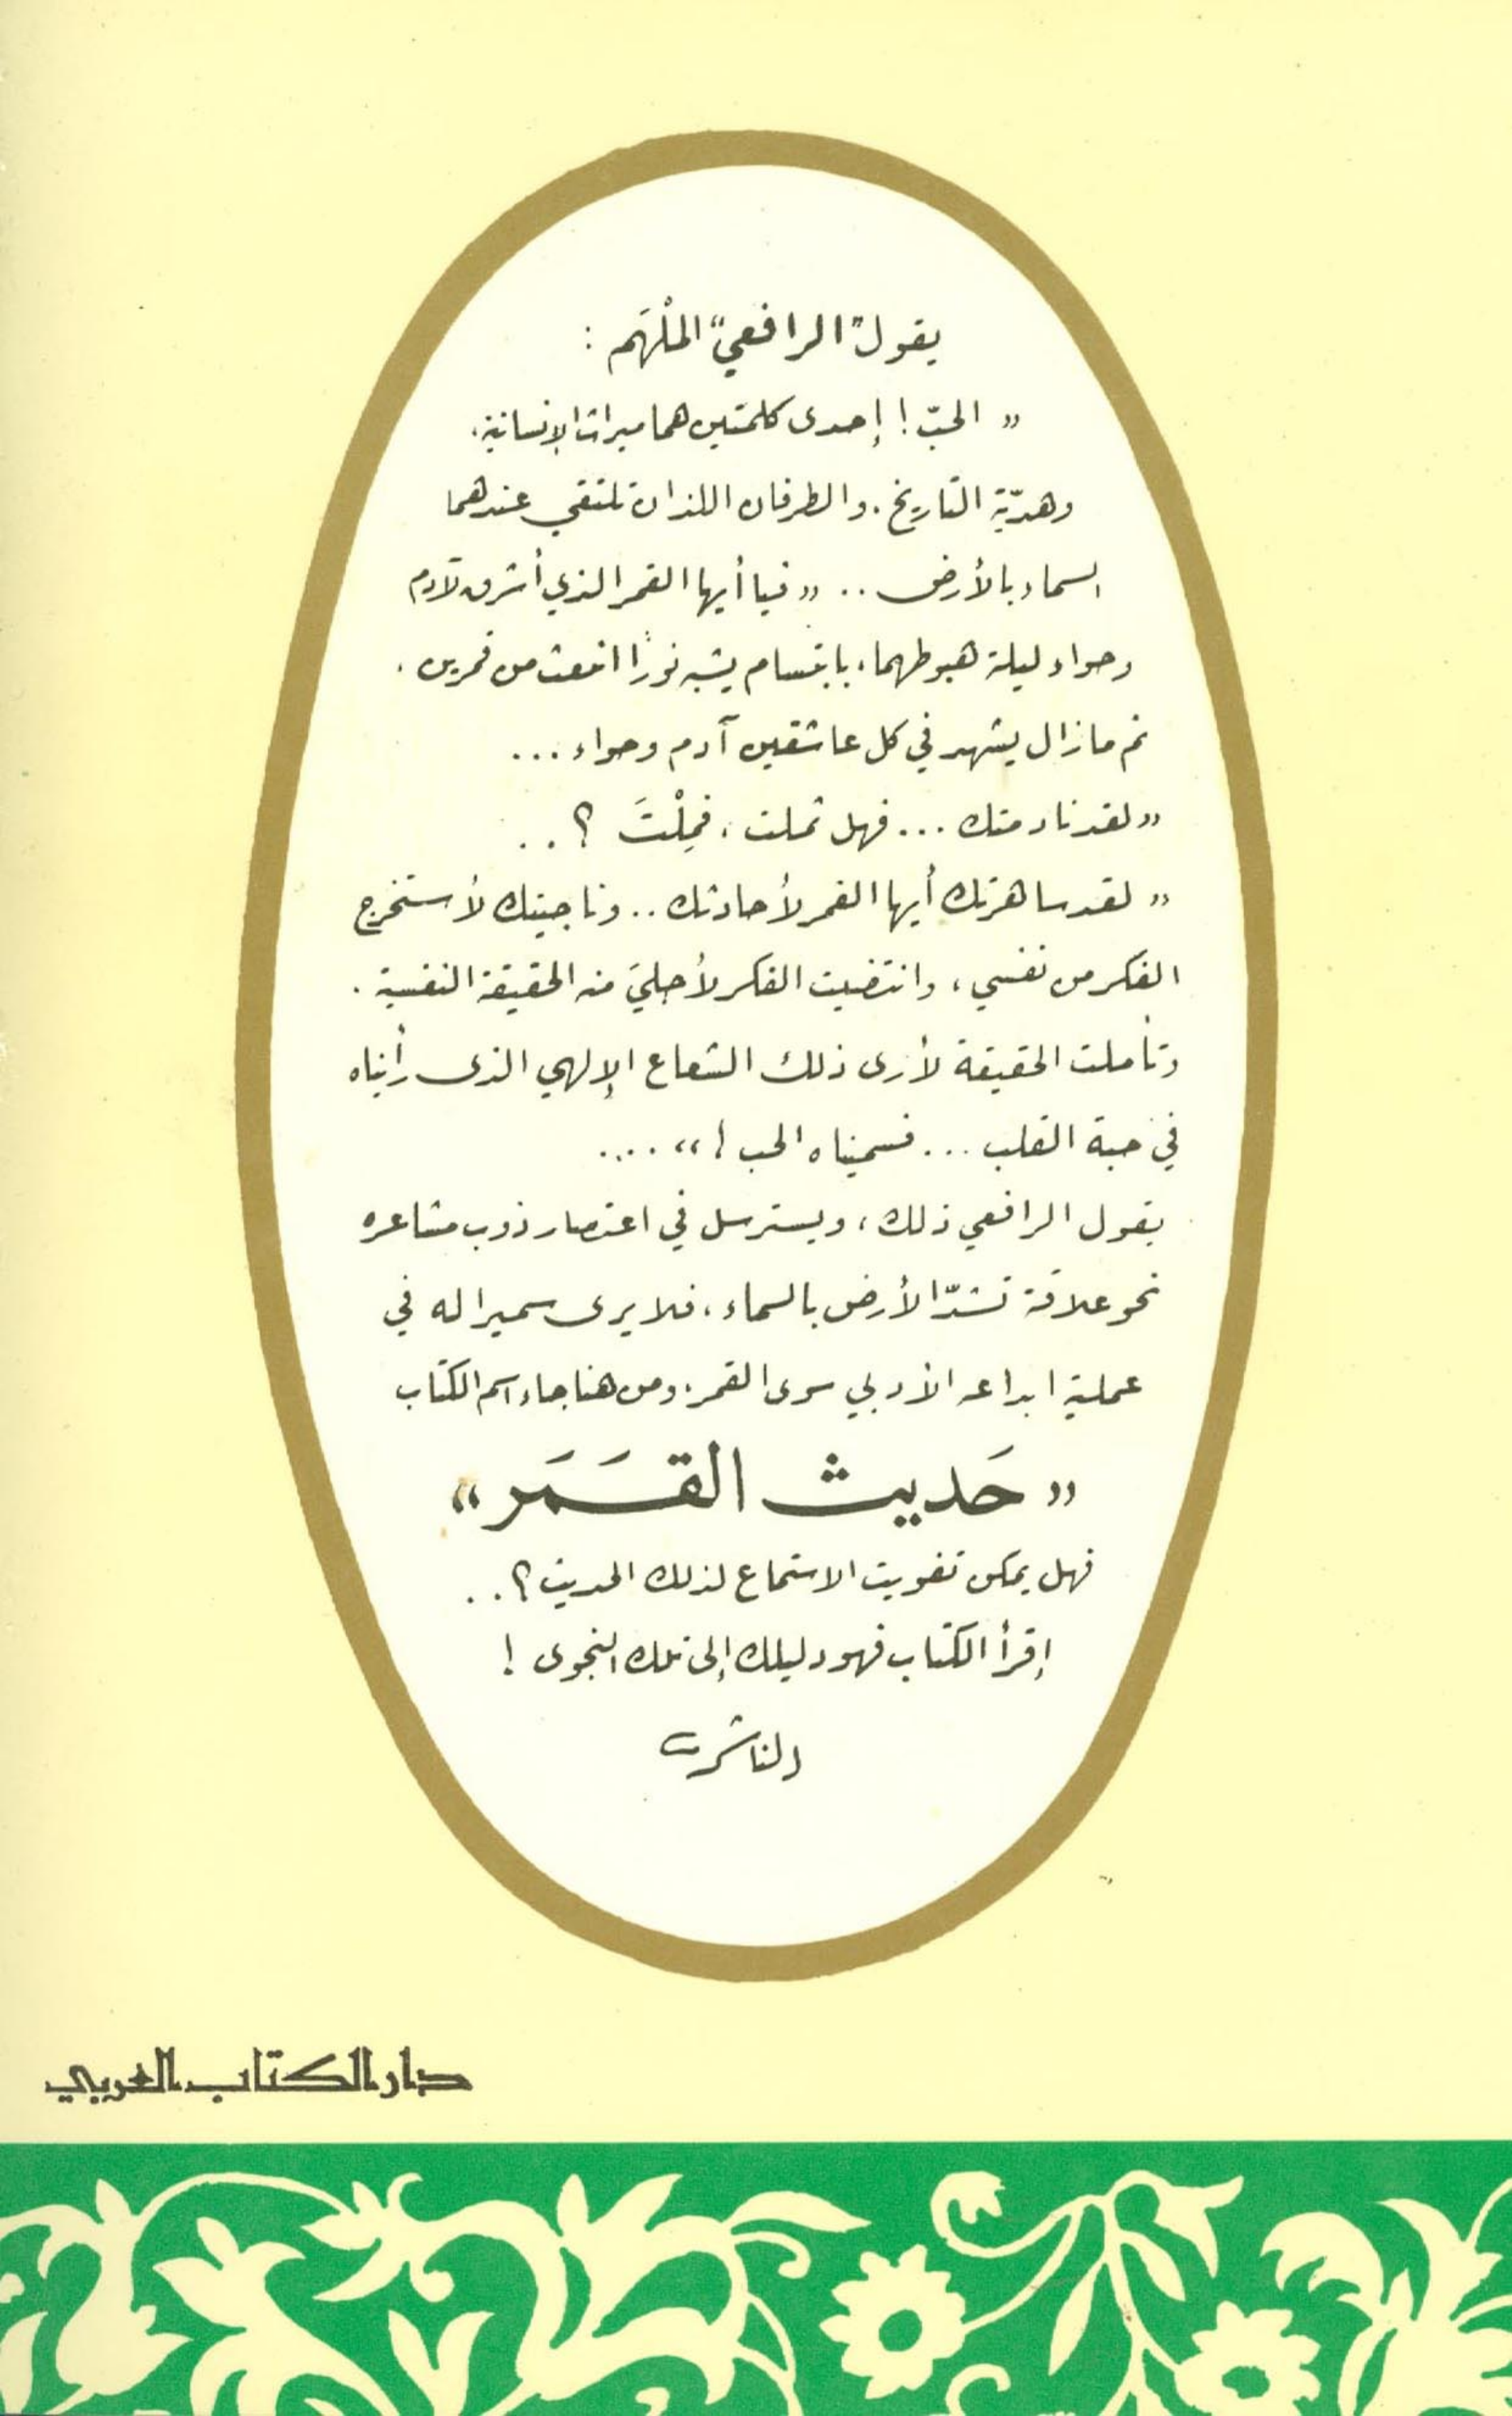 يقول "الرافعي" الملْهَم :
" الحبّ ! إحدى كلمتين هما ميراث الإنسانية،
وهديّة التاريخ . والطرفان اللذان تلتقي عندهما
السماء بالأرض .. " فيا أيها القمر الذي أشرق لآدم
وحواء ليلة هبوطهما، بابتسام يشبه نورًا انبعث من قمرين .
ثم مازال يشهد في كل عاشقين آدم وحواء ...
" لقد نادمتك ... فهل ثملت ، فَمِلْتَ ؟ ..
" لقد ساهرتك أيها القمر لأحادثك .. وناجيتك لأستخرج
الفكر من نفسي ، وانتضيت الفكر لأجليَ منه الحقيقة النفسية .
وتأملت الحقيقة لأرى ذلك الشعاع الإلهي الذى رأيناه
في حبة القلب ... فسميناه الحب ! " ....
يقول الرافعي ذلك ، ويسترسل في اعتصار ذوب مشاعره
نحو علاقة تشدّ الأرض بالسماء ، فلا يرى سميرا له في
عملية ابداعه الأدبي سوى القمر ، ومن هنا جاء اسم الكتاب
" حَديث القَمَر "
فهل يمكن تفويت الاستماع لذلك الحديث ؟ ..
إقرأ الكتاب فهو دليلك إلى تلك النجوى !
الناشر
دار الكتاب العربي